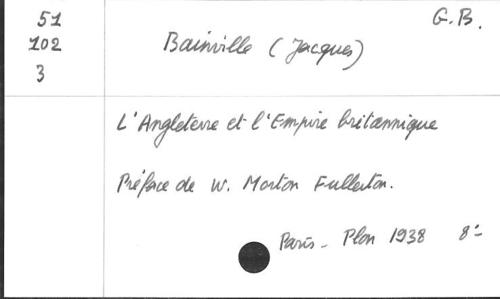 51
102
3
G.B.
Bainville (Jacques)
L'Angleterre et l'Empire britannique
Préface de W. Morton Fullerton.
Paris - Plon 1938 8º